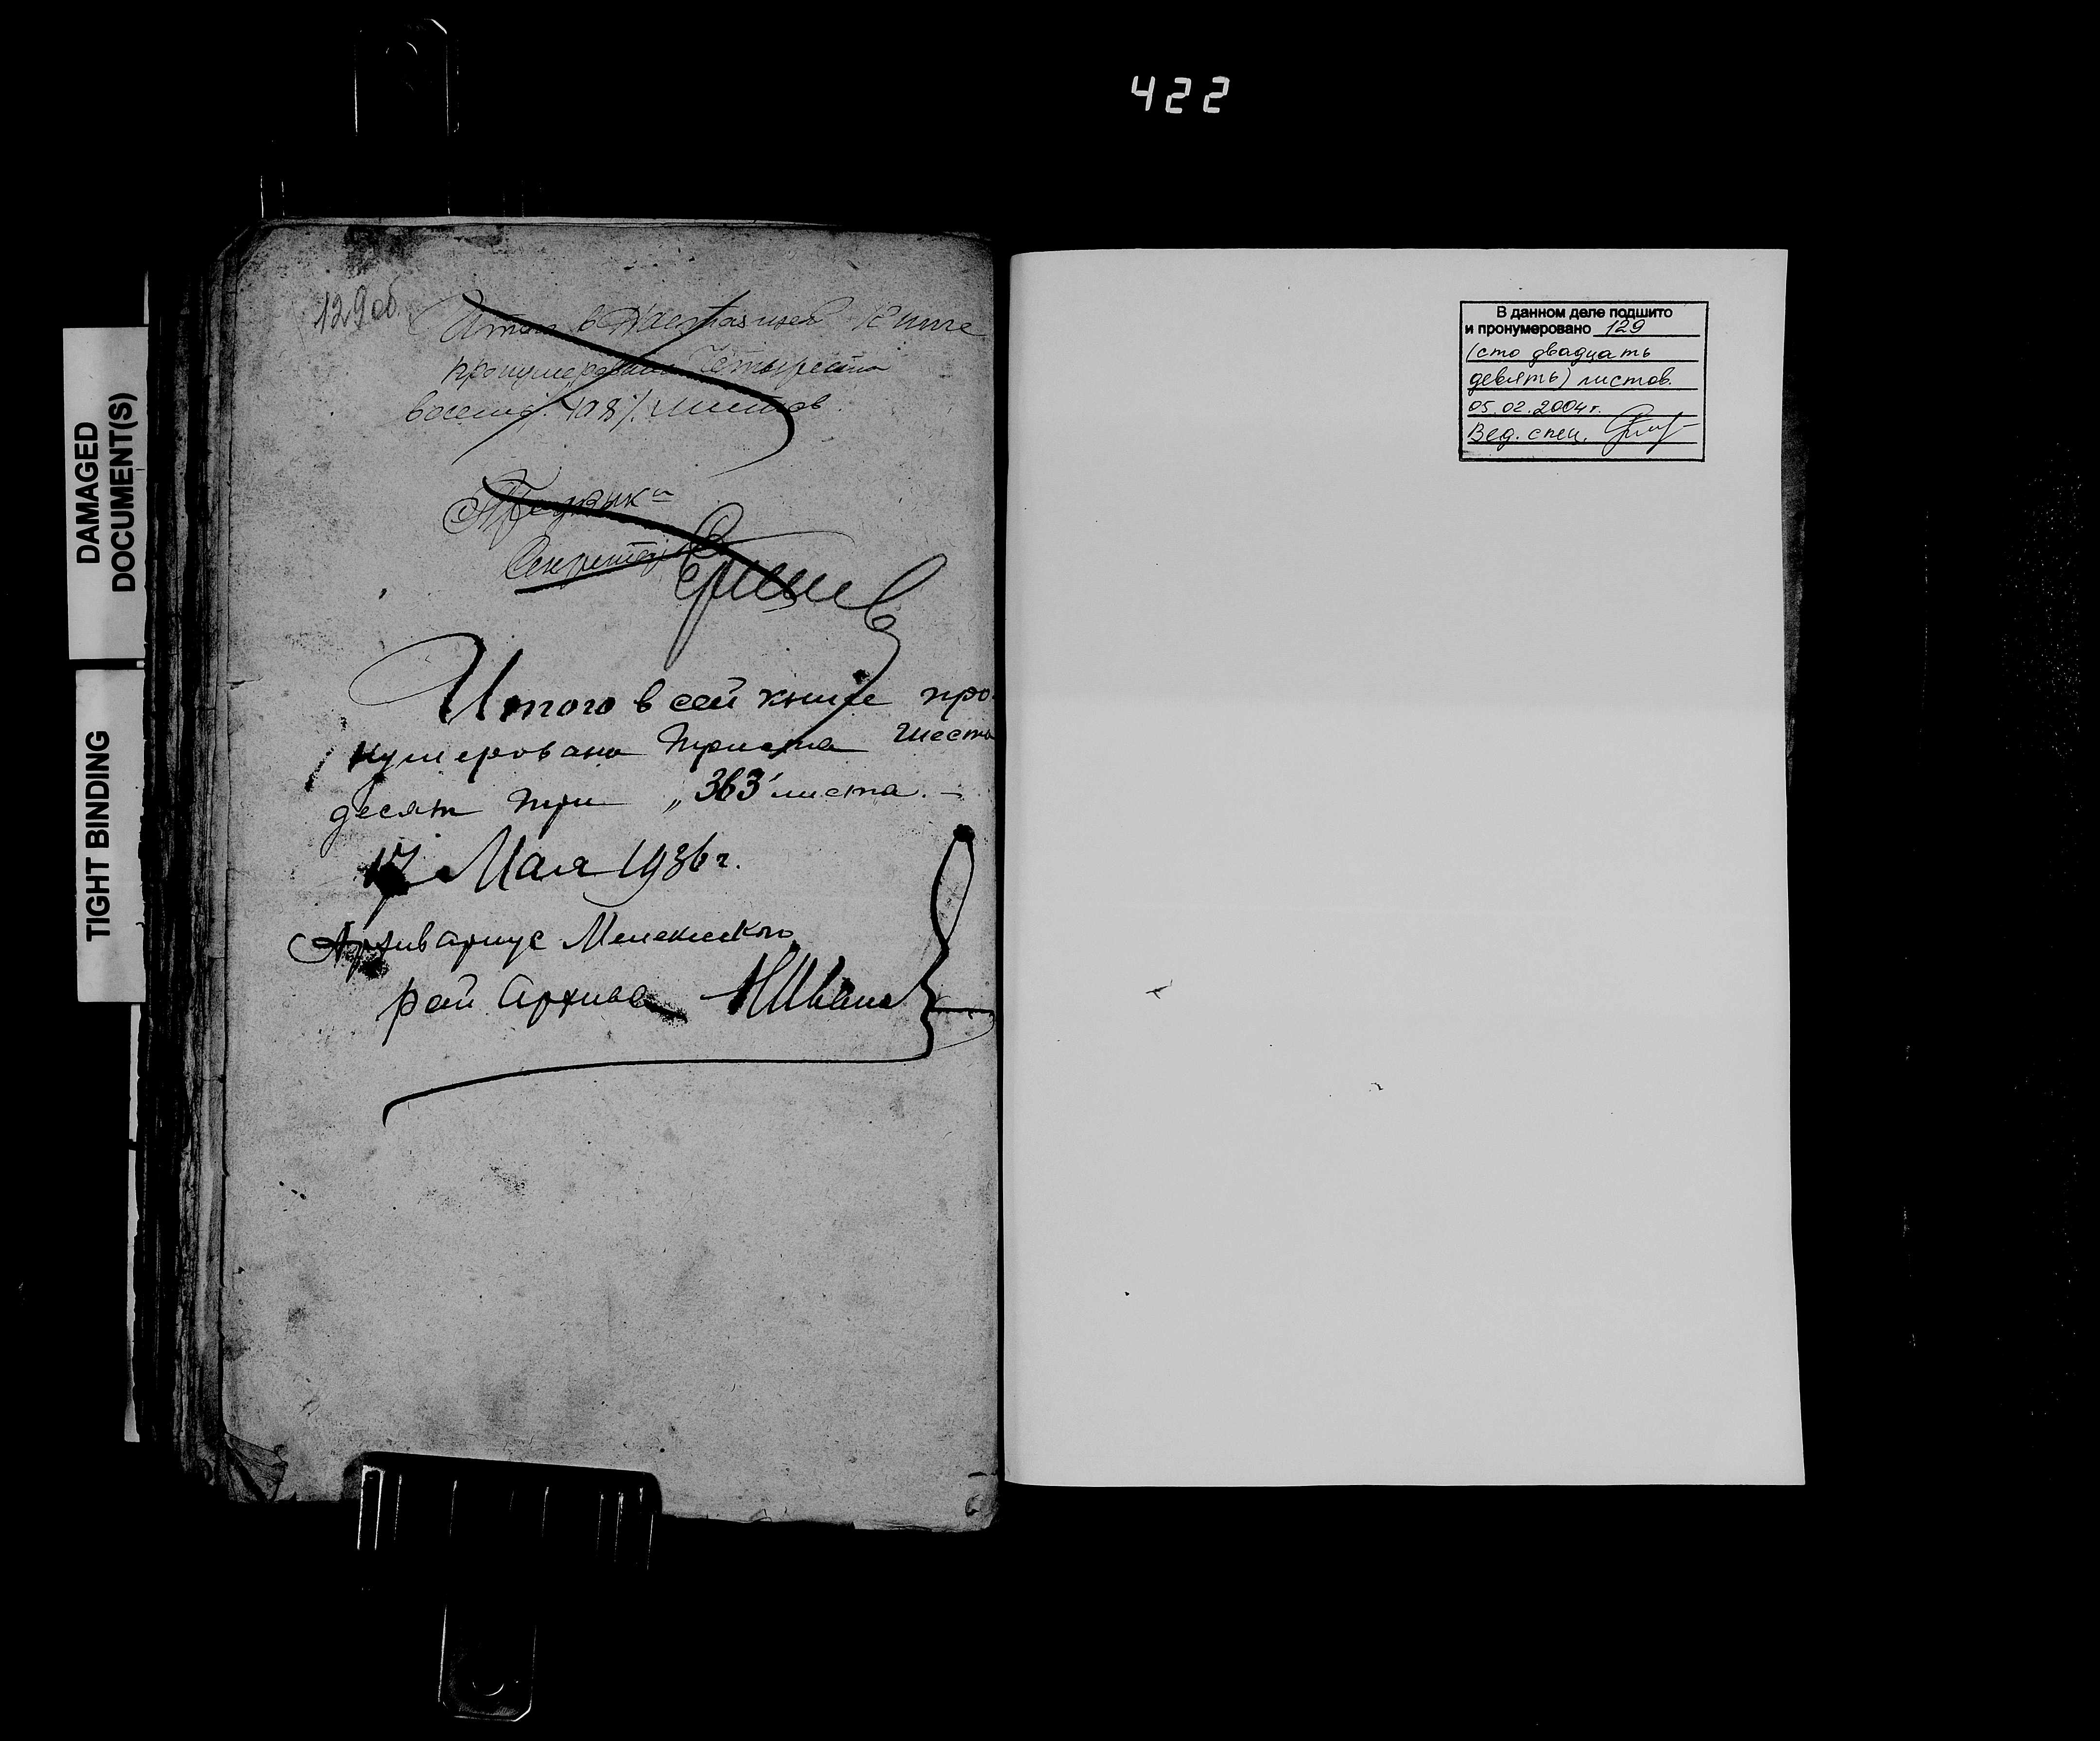 422
DAMAGED
DOCUMENT(S)
TIGHT BINDING
129об.
Итого в Настоящей Книге
пронумеровано Четыреста
восемь 408/ листов.
Секретарь
Итого в сей книге про-
нумеровано триста шесть
десят три „363" листа. –
17 Мая 1936 г.
Архивариус Мелекесского
рай Архива
В данном деле подшито
и пронумеровано 129
(сто двадцать
девять) листов.
05.02.2004 г.
Вед. спец.